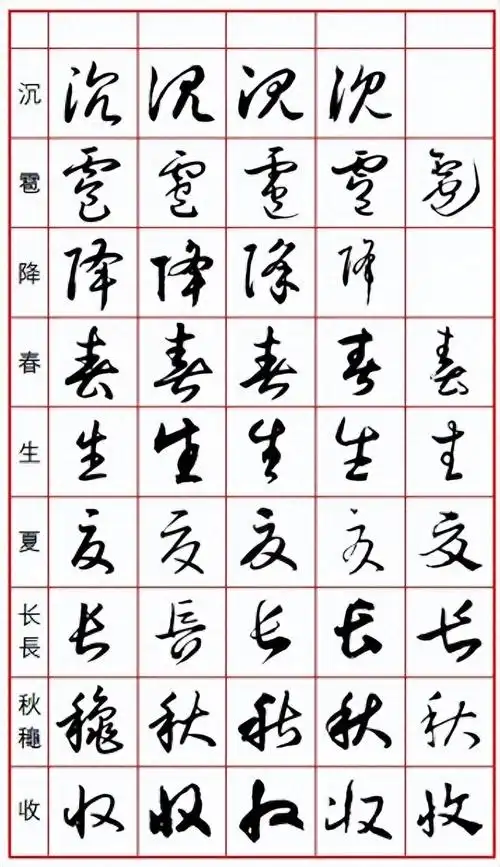 沉 沉 沉 沉 沉
雹 雹 雹 雹 雹 雹
降 降 降 降 降
春 春 春 春 春 春
生 生 生 生 生 生
夏 夏 夏 夏 夏 夏
长 長 长 長 长 长 长
秋 穐 穐 秋 秋 秋 秋
收 收 收 收 收 收